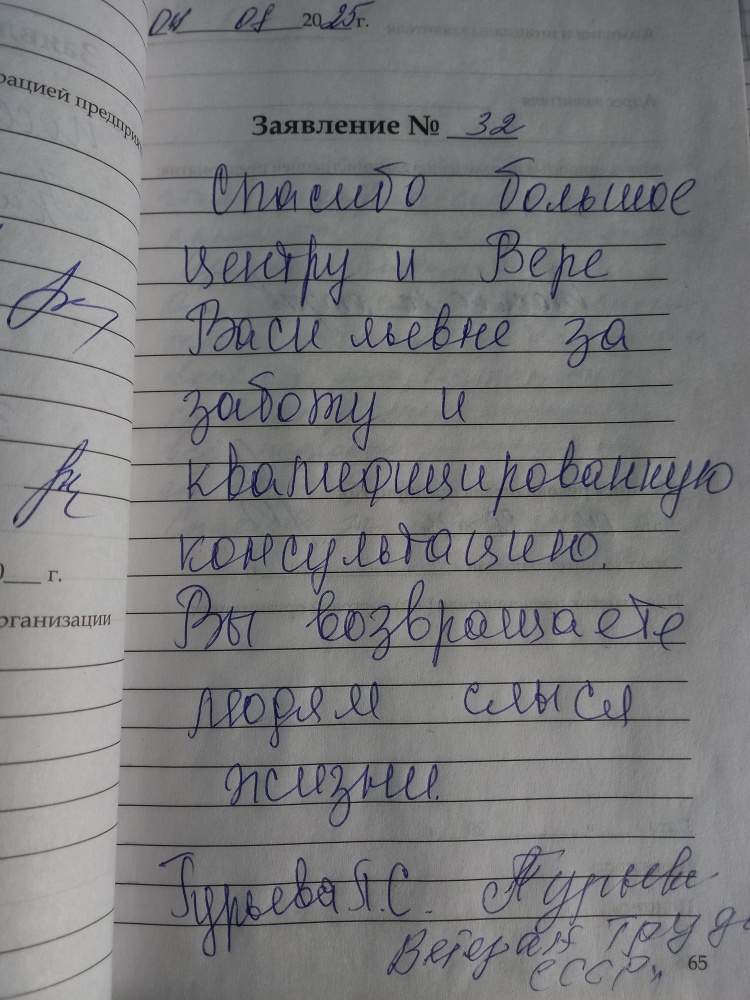 04 08 2025 г.
рацией предприя
Заявление № 32
Спасибо большое
центру и Вере
Васильевне за
заботу и
квалифицированную
консультацию.
Вы возвращаете
людям смысл
жизни.
___ г.
рганизации
Гурьева П.С. Гурьева
Ветеран труда
СССР"
65